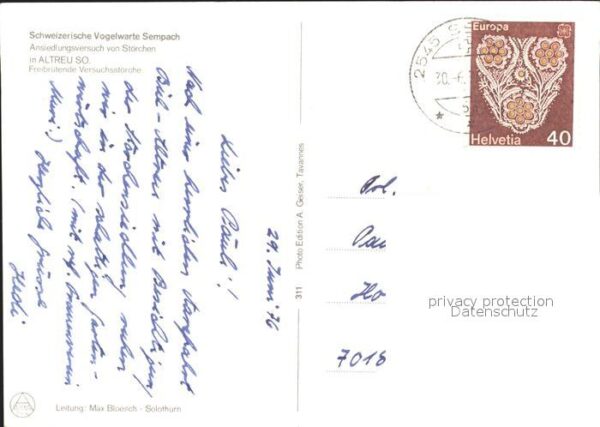 Schweizerische Vogelwarte Sempach
Ansiedlungsversuch von Störchen
in ALTREU SO.
Freibrütende Versuchsstörche
29. Juni 76
Liebes Bäuli!
Nach einer herrlichen Aarefahrt
Biel-Altreu mit Besichtigung
der Storchensiedlung ruhen
wir in der schattigen Garten-
wirtschaft. (mit ref. Frauenverein
Muri!) Herzliche Grüsse
Hedi
Leitung: Max Bloesch - Solothurn
311 Photo Edition A. Geiser, Tavannes
2545 S
30.-6.
Europa
Helvetia 40
7018
privacy protection
Datenschutz